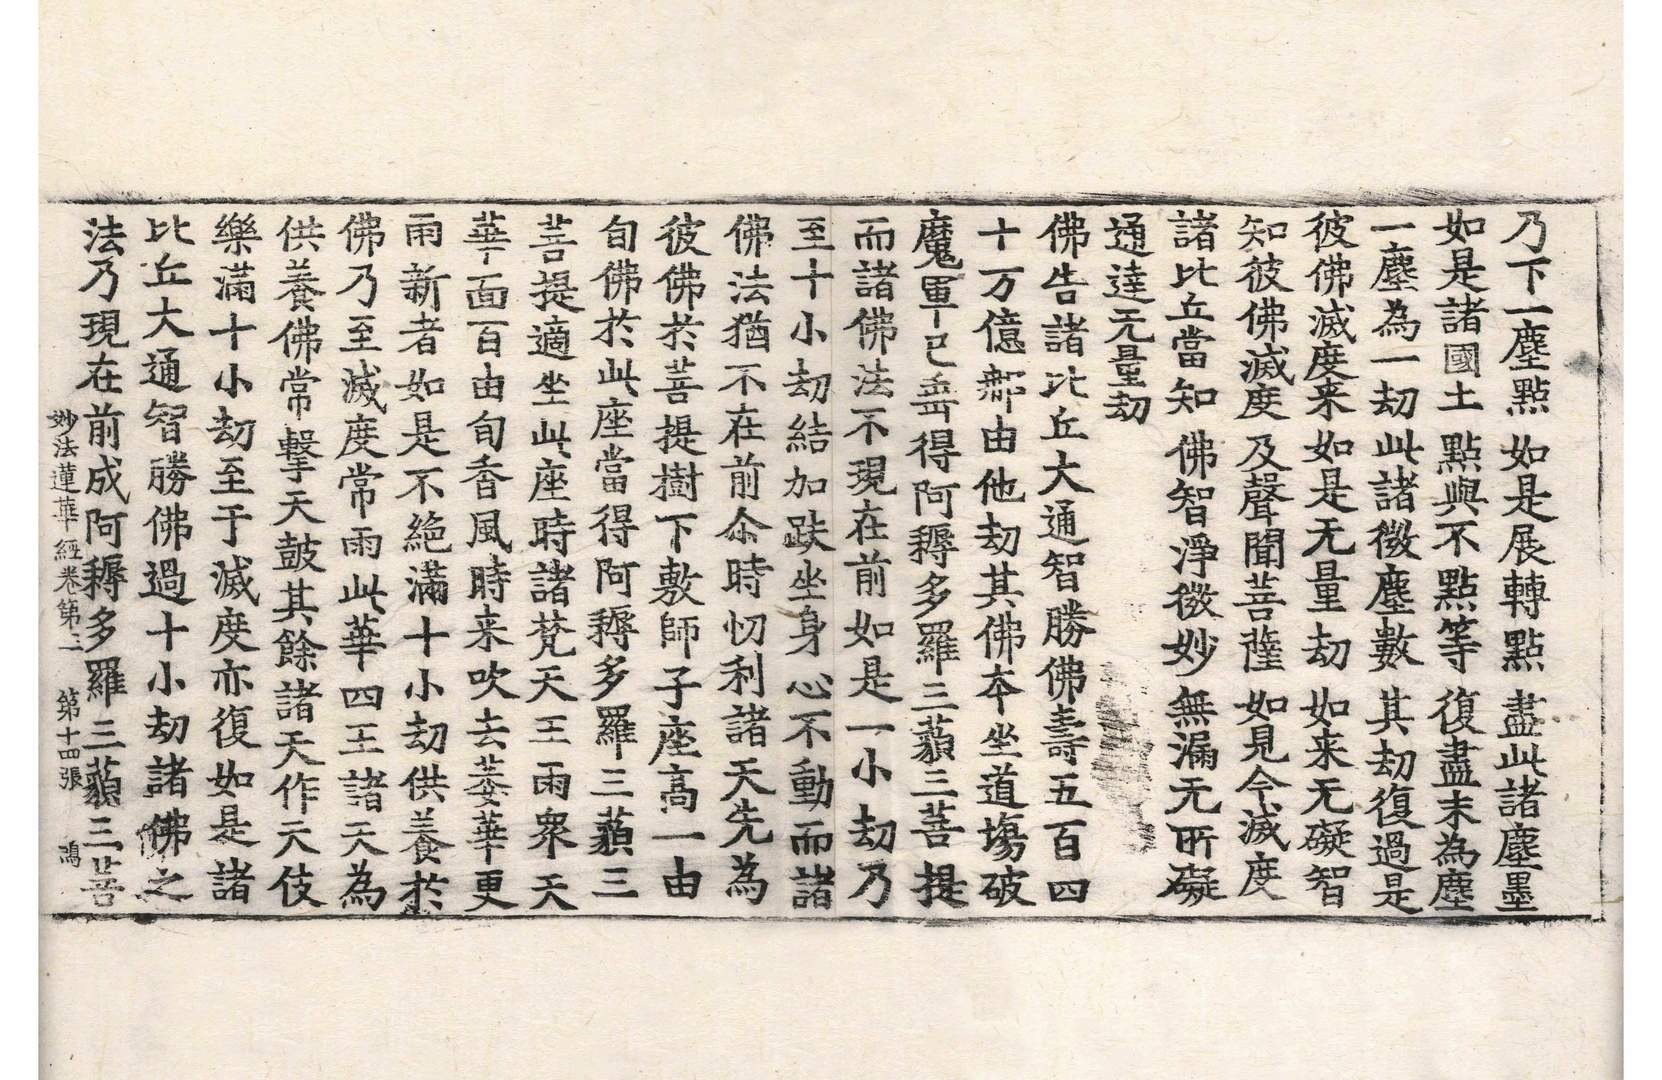 乃下一塵點　如是展轉點　盡此諸塵墨
如是諸國土　點與不點等　復盡末為塵
一塵為一劫　此諸微塵數　其劫復過是
彼佛滅度来　如是无量劫　如来无礙智
知彼佛滅度　及聲聞菩薩　如見今滅度
諸比丘當知　佛智淨微妙　無漏无所礙
通達无量劫
佛告諸比丘大通智勝佛壽五百四
十万億那由他劫其佛本坐道場破
魔軍已垂得阿耨多羅三藐三菩提
而諸佛法不現在前如是一小劫乃
至十小劫結加趺坐身心不動而諸
佛法猶不在前尒時忉利諸天先為
彼佛於菩提樹下敷師子座高一由
旬佛於此座當得阿耨多羅三藐三
菩提適坐此座時諸梵天王雨眾天
華面百由旬香風時来吹去萎華更
雨新者如是不絕滿十小劫供養於
佛乃至滅度常雨此華四王諸天為
供養佛常擊天鼓其餘諸天作天伎
樂滿十小劫至于滅度亦復如是諸
比丘大通智勝佛過十小劫諸佛之
法乃現在前成阿耨多羅三藐三菩
妙法蓮華經卷第三　第十四張　鴻